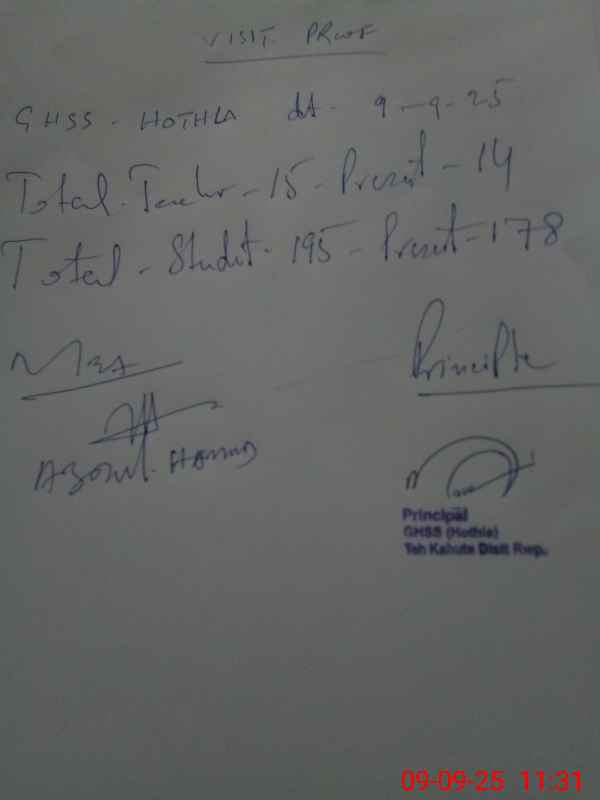 VISIT PROOF
GHSS - HOTHLA dt - 9-9-25
Total - Teacher - 15 - Present - 14
Total - Student - 195 - Present - 178
MEA Principle
Abdul Hamid
Principal
GHSS (Hothla)
Teh Kahuta Distt Rwp.
09-09-25 11:31